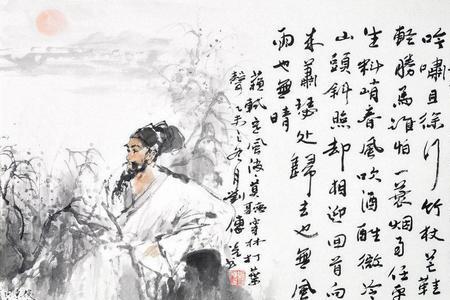 吟嘯且徐行竹杖芒鞋
輕勝馬誰怕一蓑烟雨任平
生料峭春風吹酒醒微冷
山頭斜照却相迎回首向
來蕭瑟處歸去也無風
雨也無晴
蘇軾定風波莫聽穿林打葉
聲